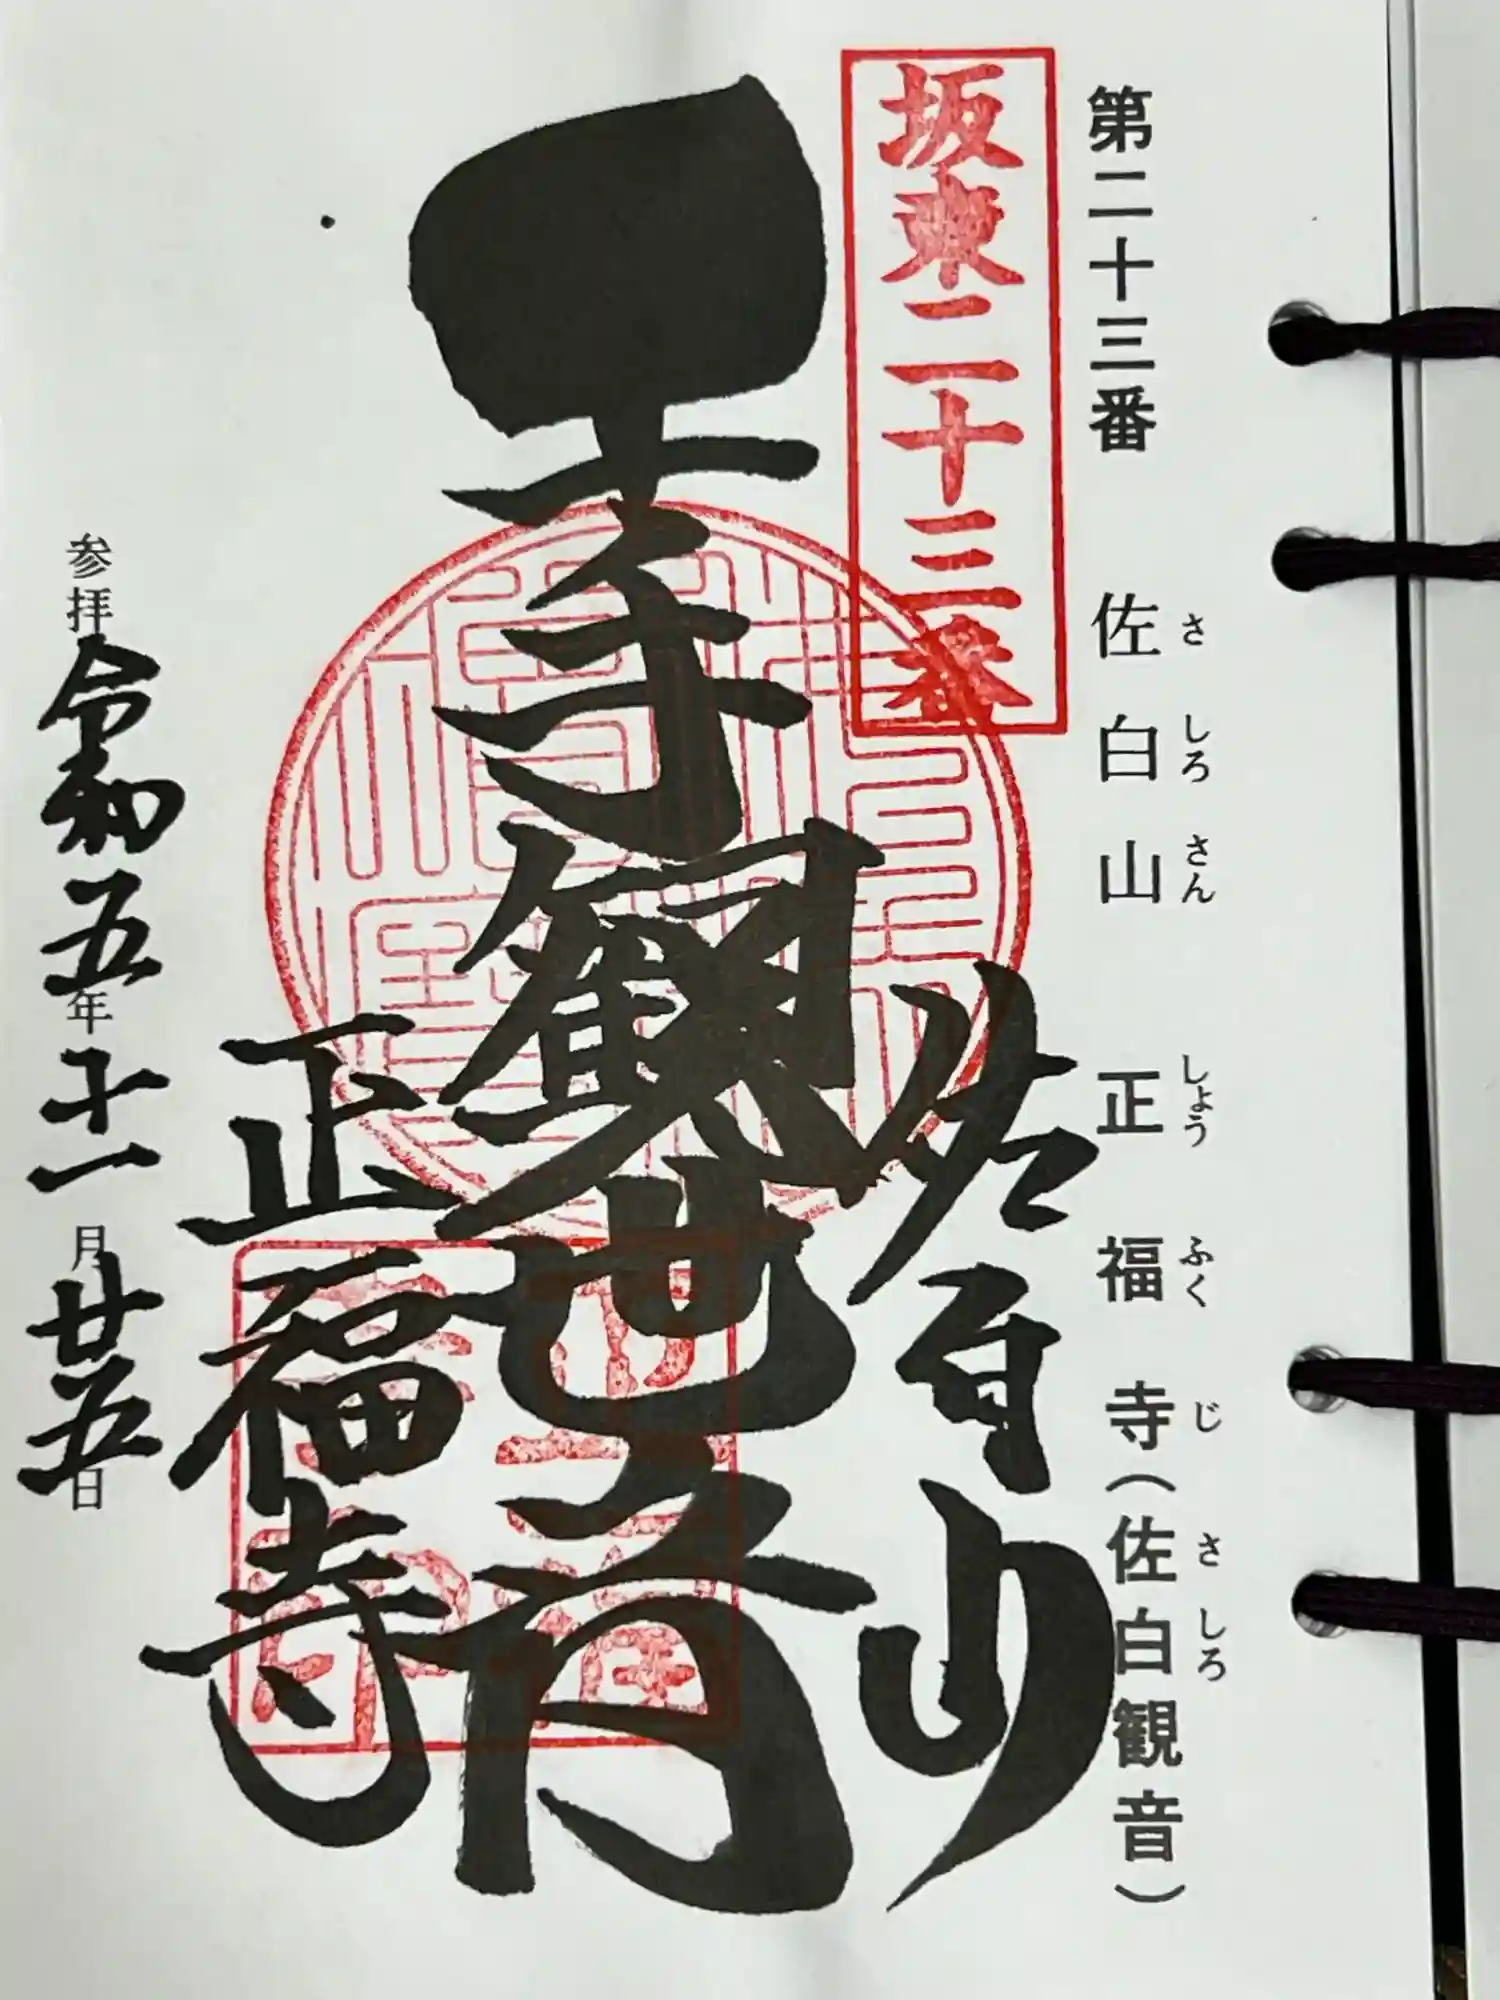 第二十三番 佐白山 正福寺（佐白観音）
さしろさん しょうふくじ さしろ
坂東二十三番
佐白山
千手観世音
正福寺
参拝 令和五年十一月廿五日